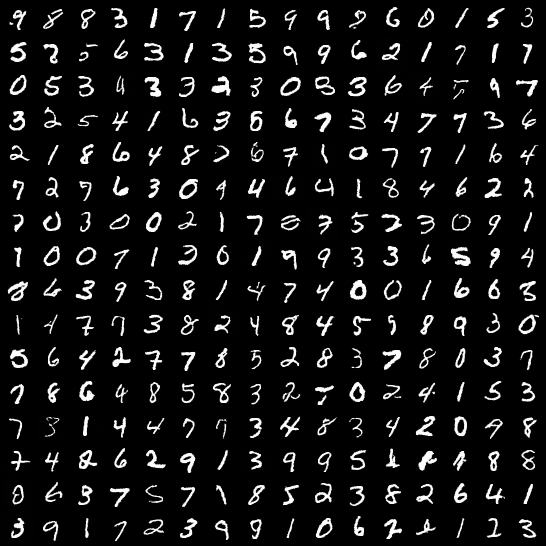 9 8 8 3 1 7 1 5 9 9 2 6 0 1 5 3
5 2 5 6 3 1 3 5 9 9 6 2 1 7 1 7
0 5 3 9 3 3 2 3 0 3 3 6 4 5 9 7
3 2 5 4 1 6 3 5 6 7 3 4 7 7 3 6
2 1 8 6 4 8 2 6 7 1 0 7 7 1 6 4
7 2 7 6 3 0 9 4 6 4 1 8 4 6 2 2
7 0 3 0 0 2 1 7 0 7 5 2 3 0 9 1
1 0 0 7 1 2 0 1 9 9 3 3 6 5 9 4
8 6 3 9 3 8 1 4 7 4 0 0 1 6 6 3
1 4 7 7 3 8 2 4 8 4 5 9 8 9 3 0
5 6 4 2 7 7 8 5 2 8 3 7 8 0 3 7
7 8 6 4 8 5 8 3 2 7 0 2 4 1 5 3
7 3 1 4 4 7 7 3 4 8 3 4 2 0 9 8
7 4 8 6 2 9 1 3 9 9 5 8 8
0 6 3 7 5 7 1 8 5 2 3 8 2 6 4 1
3 9 1 7 2 3 9 9 1 0 6 2 1 2 3